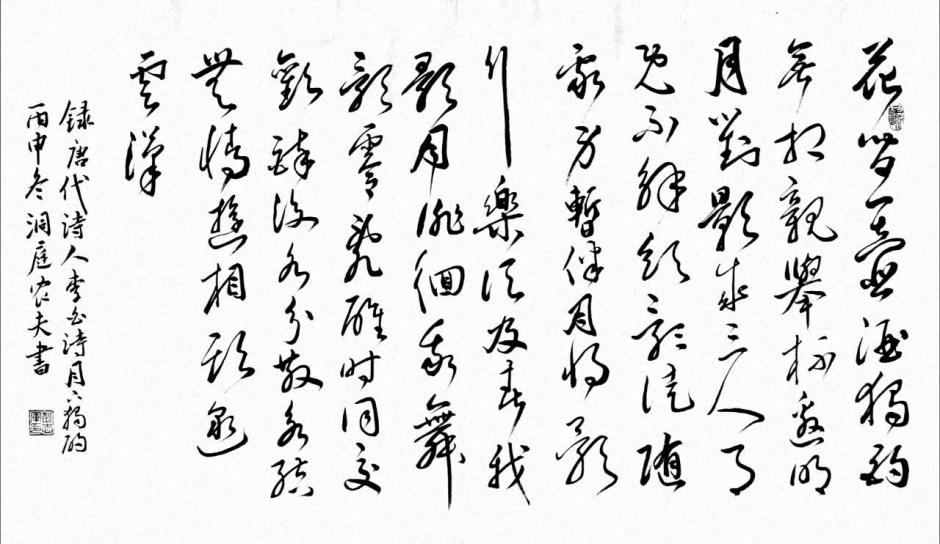 花間一壺酒獨酌
無相親舉杯邀明
月對影成三人月
既不解飲影徒隨
我身暫伴月將影
行樂須及春我
歌月徘徊我舞
影零亂醒時同交
歡醉後各分散永結
無情遊相期邈
雲漢
録唐代诗人李白诗月下獨酌
丙申冬洞庭农夫書